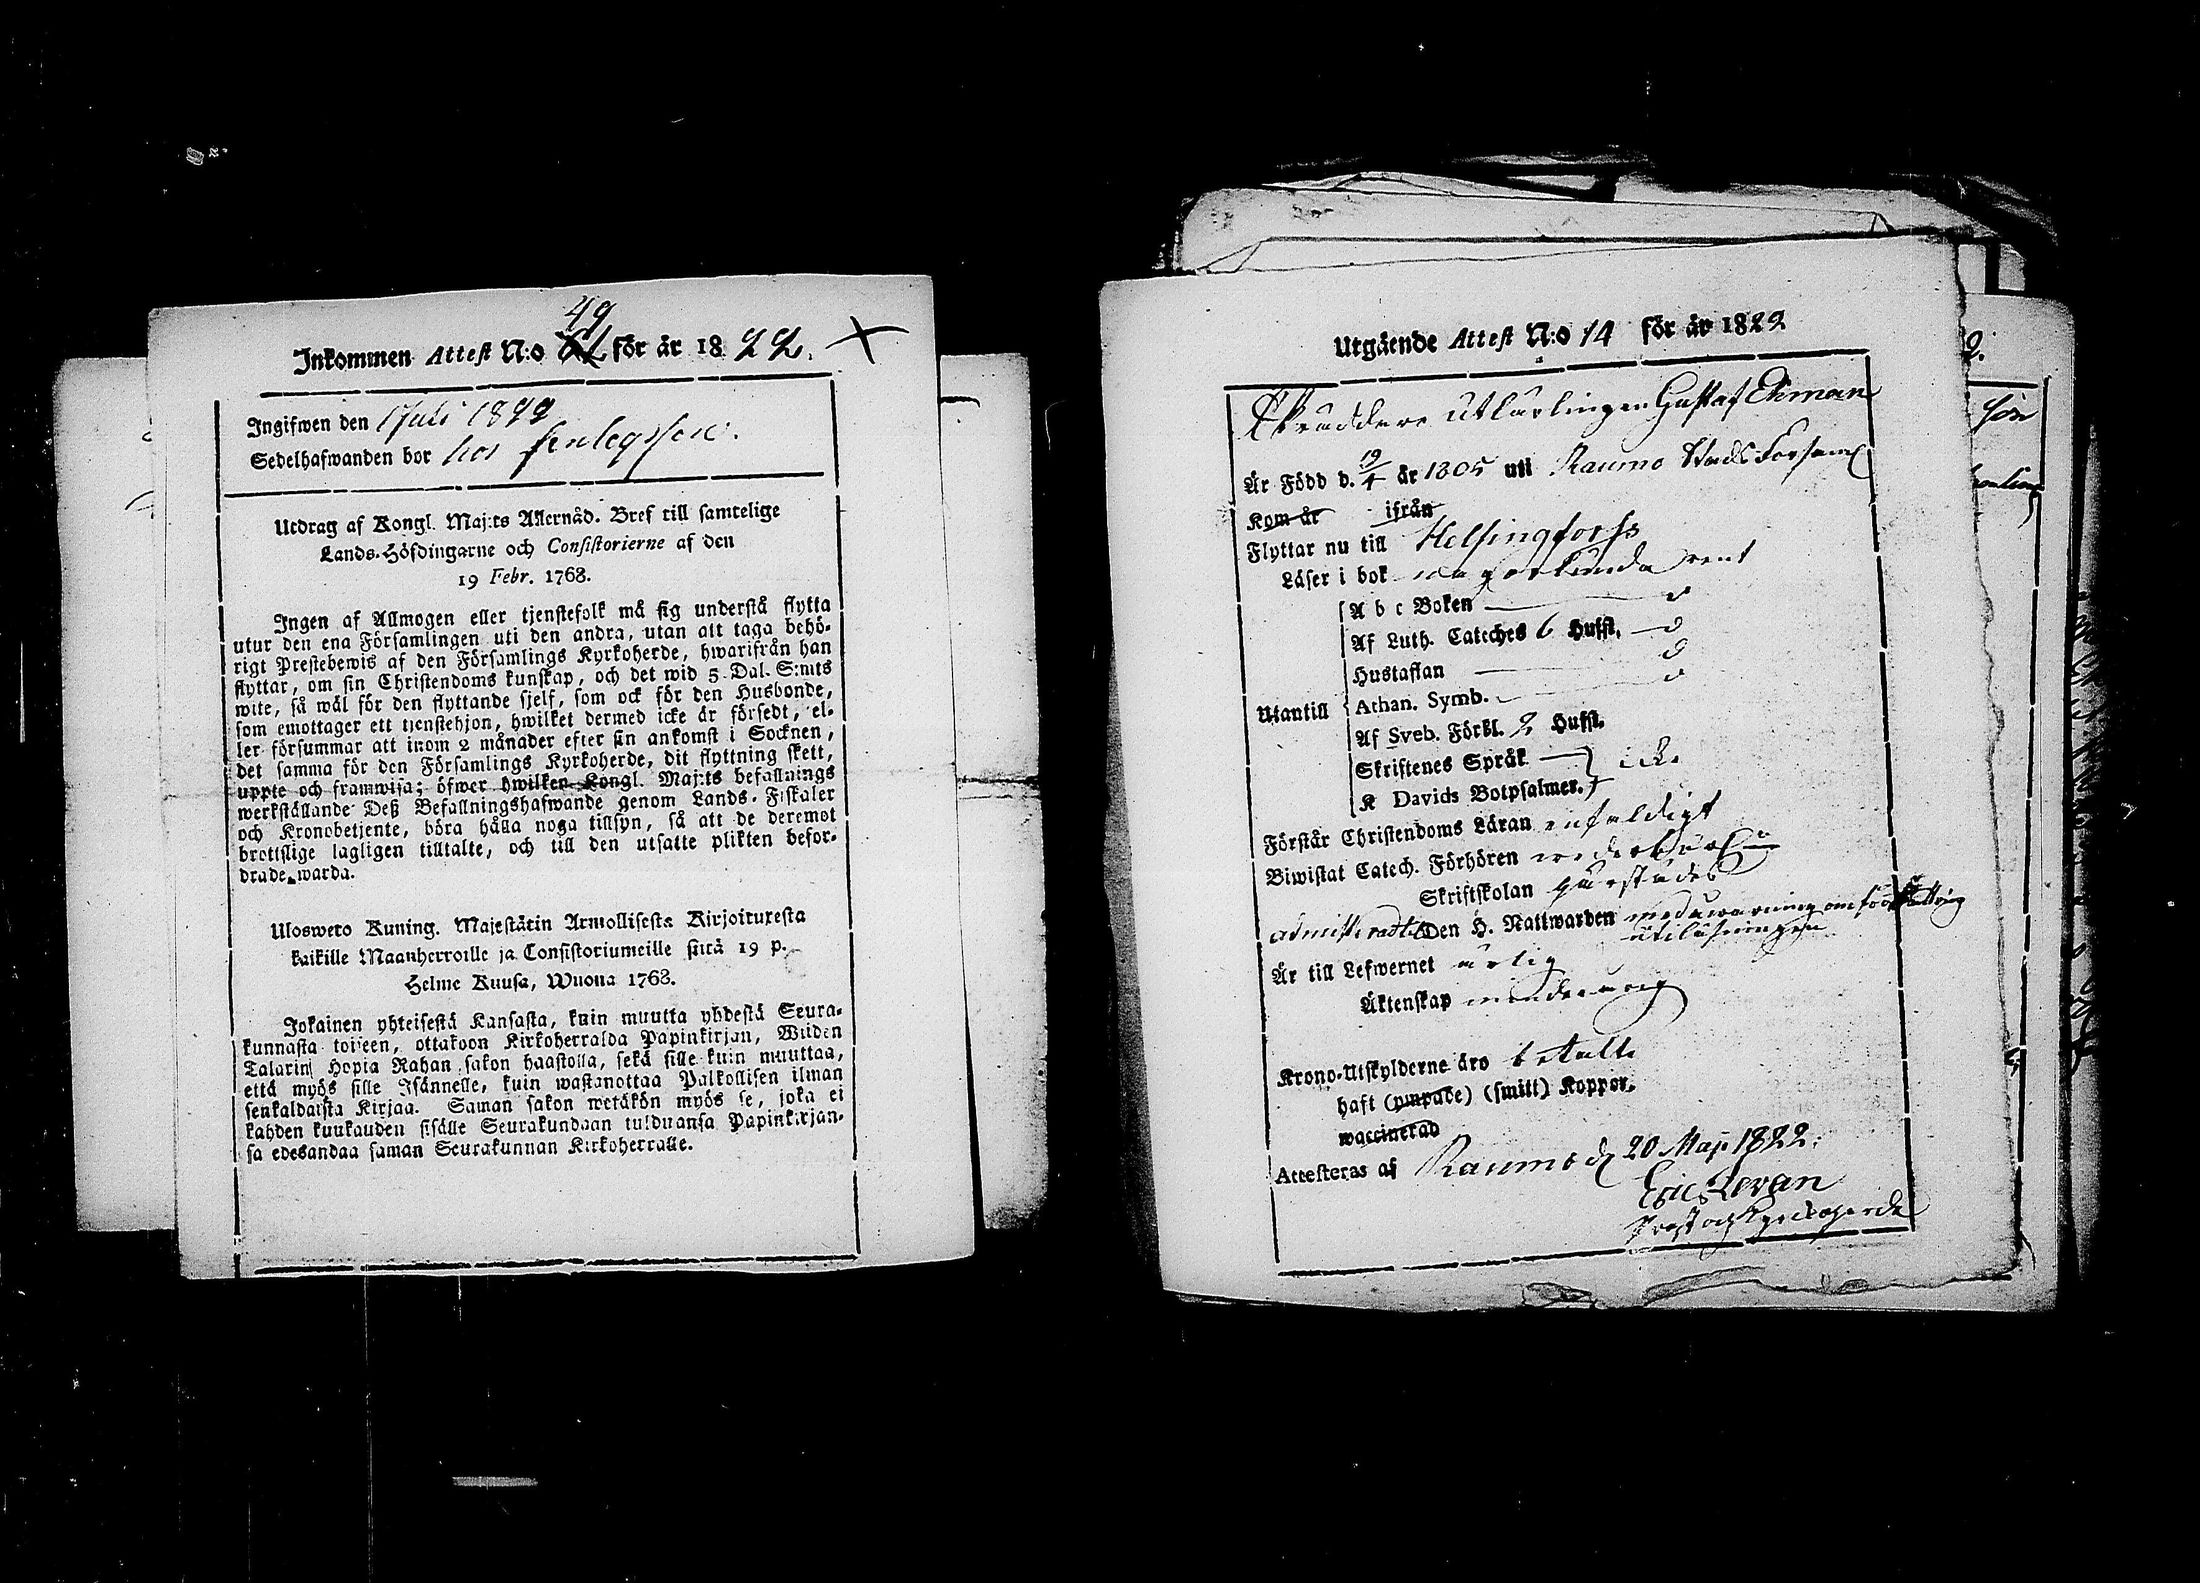 49
Inkommen Attest N:o för år 1822.
Ingifwen den 1 Juli 1822
Sedelhafwanden bor hos
Utdrag af Kongl. Maj:ts Allernåd. Bref till samtelige
Lands-Höfdingarne och Consistorierne af den
19 Febr. 1768.
Ingen af Allmogen eller tjenstefolk må sig understå flytta
utur den ena Församlingen uti den andra, utan att taga behö-
rigt Prestebewis af den Församlings Kyrkoherde, hwarifrån han
flyttar, om sin Christendoms kunskap, och det wid 5 Dal. S:mts
wite, så wäl för den flyttande sjelf, som ock för den Husbonde,
som emottager ett tjenstehjon, hwilket dermed icke är försedt, el-
ler försummar att inom 2 månader efter sin ankomst i Socknen,
det samma för den Församlings Kyrkoherde, dit flyttning skett,
uppte och framwisa; öfwer hwilken Kongl. Maj:ts befallnings
werkställande Deß Befallningshafwande genom Lands-Fiskaler
och Kronobetjente, böra hålla noga tillsyn, så att de deremot
brottslige lagligen tilltalte, och till den utsatte plikten befor-
drade warda.
Ulosweto Kuning. Majestätin Armollisesta Kirjoituxesta
kaikille Maanherroille ja Consistoriumeille siitä 19 p.
Helme Kuusa, Wuona 1768.
Jokainen yhteisestä Kansasta, kuin muutta yhdestä Seura-
kunnasta toiseen, ottakoon Kirkoherralda Papinkirjan, Wiiden
Talarin Hopia Rahan sakon haastolla, sekä sille kuin muuttaa,
että myös sille Isännelle, kuin wastanottaa Palkollisen ilman
senkaldaista Kirjaa. Saman sakon wetäkön myös se, joka ei
kahden kuukauden sisälle Seurakundaan tulduansa Papinkirjan-
sa edesandaa saman Seurakunnan Kirkoherralle.
Utgående Attest N:o 14 för år 1822
Skräddare Utlärlingen Gustaf Ekman
Är Född d. 19/4 år 1805 uti Raumo Stads Forsaml
Kom år ifrån
Flyttar nu till Helsingforss
Läser i bok någorlunda rent
A b c Boken — d
Af Luth. Cateches 6 Hufst. — d
Hustaflan — d
Utantill Athan. Symb. — d
Af Sveb. Förkl. 2 Hufst.
Skriftenes Språk — icke
K Davids Botpsalmer.
Förstår Christendoms Läran enfaldigt
Biwistat Catech. Förhören wederbör
Skriftskolan
admitterad till Den H. Nattwarden med warning om fortsättning
utiläsningen
Är till Lefwernet ärlig
Äktenskap minderårig
Krono-Utskylderne äro betalte
haft (ympade) (smitt) Koppor.
waccinerad
Attesteras af Raumo d. 20 Maj 1822.
Eric Levan
Prost och Kyrckoherde